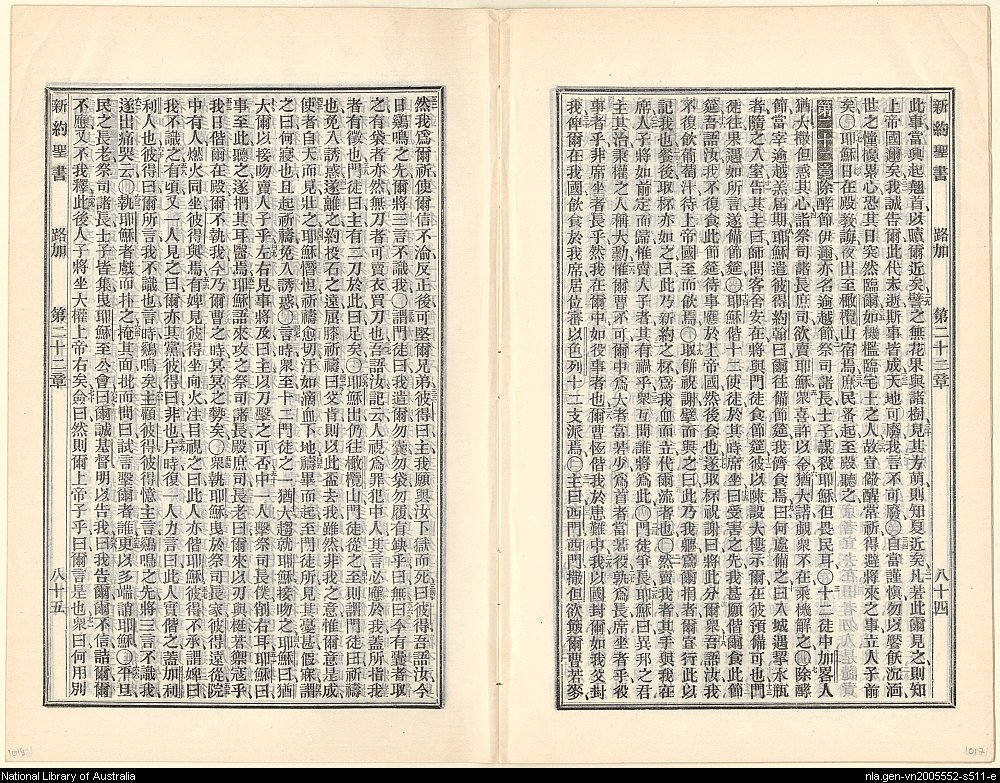 新約聖書　路加　第二十二章　八十四
此事當興起翹首以贖爾近矣譬之無花果與諸樹見其方萌則知夏近矣凡若此爾見之則知
上帝國邇矣我誠告爾此代未逝斯事皆成天地可廢我言不可廢自當謹慎勿以饕飲沉湎
世之憧擾累心恐其日突然臨爾如機檻臨宅土之人故宜儆醒常祈得避將來之事立人子前
矣耶穌日在殿教誨夜出至橄欖山宿焉庶民蚤起至殿聽之
第二十二章　除酵節伊邇亦名逾越節祭司諸長士子謀殺耶穌但畏民耳十二徒中加畧人
猶大撒但惑其心詣祭司諸長庶司欲賣耶穌衆喜許以金猶大諾覷衆不在乘機解之除酵
節當宰逾越羔屆期耶穌遣彼得約翰曰爾往備節筵我儕食焉曰何處備之曰入城遇挈水瓶
者隨之入室告其主曰師問客舍安在將與門徒食節筵彼以陳設大樓示爾在彼預備可也門
徒往果遇如所言遂備節筵耶穌偕十二使徒於其時席坐曰受害之先我甚願偕爾食此節
筵吾語汝我不復食此節筵待事應於上帝國然後食也遂取杯祝謝曰將此分爾衆吾語汝我
不復飲葡萄汁待上帝國至而飲焉取餅祝謝擘而與之曰此乃我軀爲爾捐者爾宜行此以
記我也餐後取杯亦如之曰此乃新約之杯爲我血而立代爾流者也然賣我者其手與我在
席人子將如前定而歸惟賣人子者其有禍乎衆互問誰將爲此門徒爭長耶穌曰異邦之君
主其治秉權之人稱大勳惟爾曹不可爾中爲大者當若少爲首者當若役孰爲長席坐者乎役
事者乎非席坐者長乎然我在爾中如役事者也爾曹恆偕我於患難中我以國爾如我父封
我俾爾在我國飲食於我席居位審以色列十二支派焉主曰西門西門撒但欲簸爾曹若麥
然我爲爾祈使爾信不渝反正後可堅爾兄弟彼得曰主我願與汝下獄而死曰彼得吾語汝今
日鷄鳴之先爾將三言不識我謂門徒曰我遣爾勿囊勿袋勿履有缺乎曰無曰今有囊者取
之有袋者亦然無刀者可賣衣買刀也吾語汝記云人視爲罪犯中人其言必應於我蓋所指我
者有徵也門徒曰主有二刀於此曰足矣耶穌出仍往橄欖山門徒從之至則謂門徒曰祈禱
也免入誘惑遂離之約投石之遠屈膝祈禱曰父肯則以此盃去我雖然非我之意惟爾意是成
使者自天而見壯之耶穌憯怛祈禱愈切汗如滴血下地禱畢而起至門徒所見其憂甚假寐謂
之曰何寢也且起祈禱免入誘惑言時衆至十二門徒之一猶大趨就耶穌接吻之耶穌曰猶
大爾以接吻賣人子乎左右見事將及曰主以刀擊之可否中一人擊祭司長僕削右耳耶穌曰
事至此聽之遂捫其耳醫焉耶穌語來攻之祭司諸長殿庶司長老曰爾來以刃與梃若禦寇乎
我日偕爾在殿爾不執我今乃爾曹之時冥冥之勢矣衆執耶穌曳於祭司長家彼得遠從院
中有人燃火同坐彼得與焉有婢見彼得坐向火注目視之曰此人亦偕耶穌彼得不承謂婢曰
我不識之有頃又一人見之曰爾亦其黨彼得曰非也片時復一人力言曰此人實偕之蓋加利
利人也彼得曰爾所言我不識也言時鷄鳴矣主顧彼得彼得憶主言鷄鳴之先將三言不識我
遂出痛哭云執耶穌者戲而扑之掩其面批而問曰試言擊爾者誰更以多端誚耶穌平旦
民之長老祭司諸長士子皆集曳耶穌至公會曰爾誠基督明以告我曰我告爾爾不信詰爾爾
不應又不我釋此後人子將坐大權上帝右矣僉曰然則爾上帝子乎曰爾言是也衆曰何用別
新約聖書　路加　第二十二章　八十五
1018
1017
National Library of Australia
nla.gen-vn2005552-s511-e